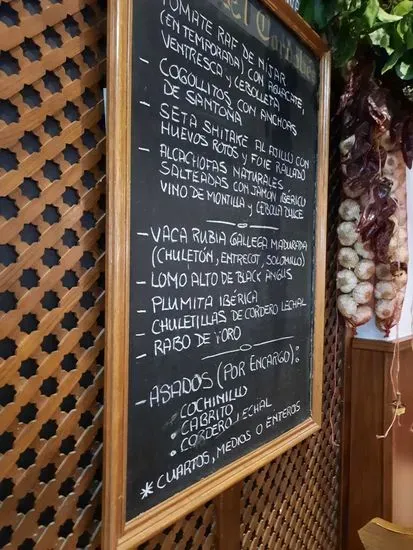 El Cordobés
TOMATE RAF DE NÍJAR
(EN TEMPORADA), CON AGUACATE,
VENTRESCA y CEBOLLETA
- COGOLLITOS CON ANCHOAS
DE SANTOÑA
- SETA SHITAKE AL AJILLO CON
HUEVOS ROTOS y FOIE RALLADO
- ALCACHOFAS NATURALES
SALTEADAS CON JAMÓN IBÉRICO
VINO DE MONTILLA y CEBOLLA DULCE
- VACA RUBIA GALLEGA MADURADA
(CHULETÓN, ENTRECOT, SOLOMILLO)
- LOMO ALTO DE BLACK ANGUS
- PLUMITA IBÉRICA
- CHULETILLAS DE CORDERO LECHAL
- RABO DE TORO
- ASADOS (POR ENCARGO):
· COCHINILLO
· CABRITO
· CORDERO LECHAL
* CUARTOS, MEDIOS O ENTEROS